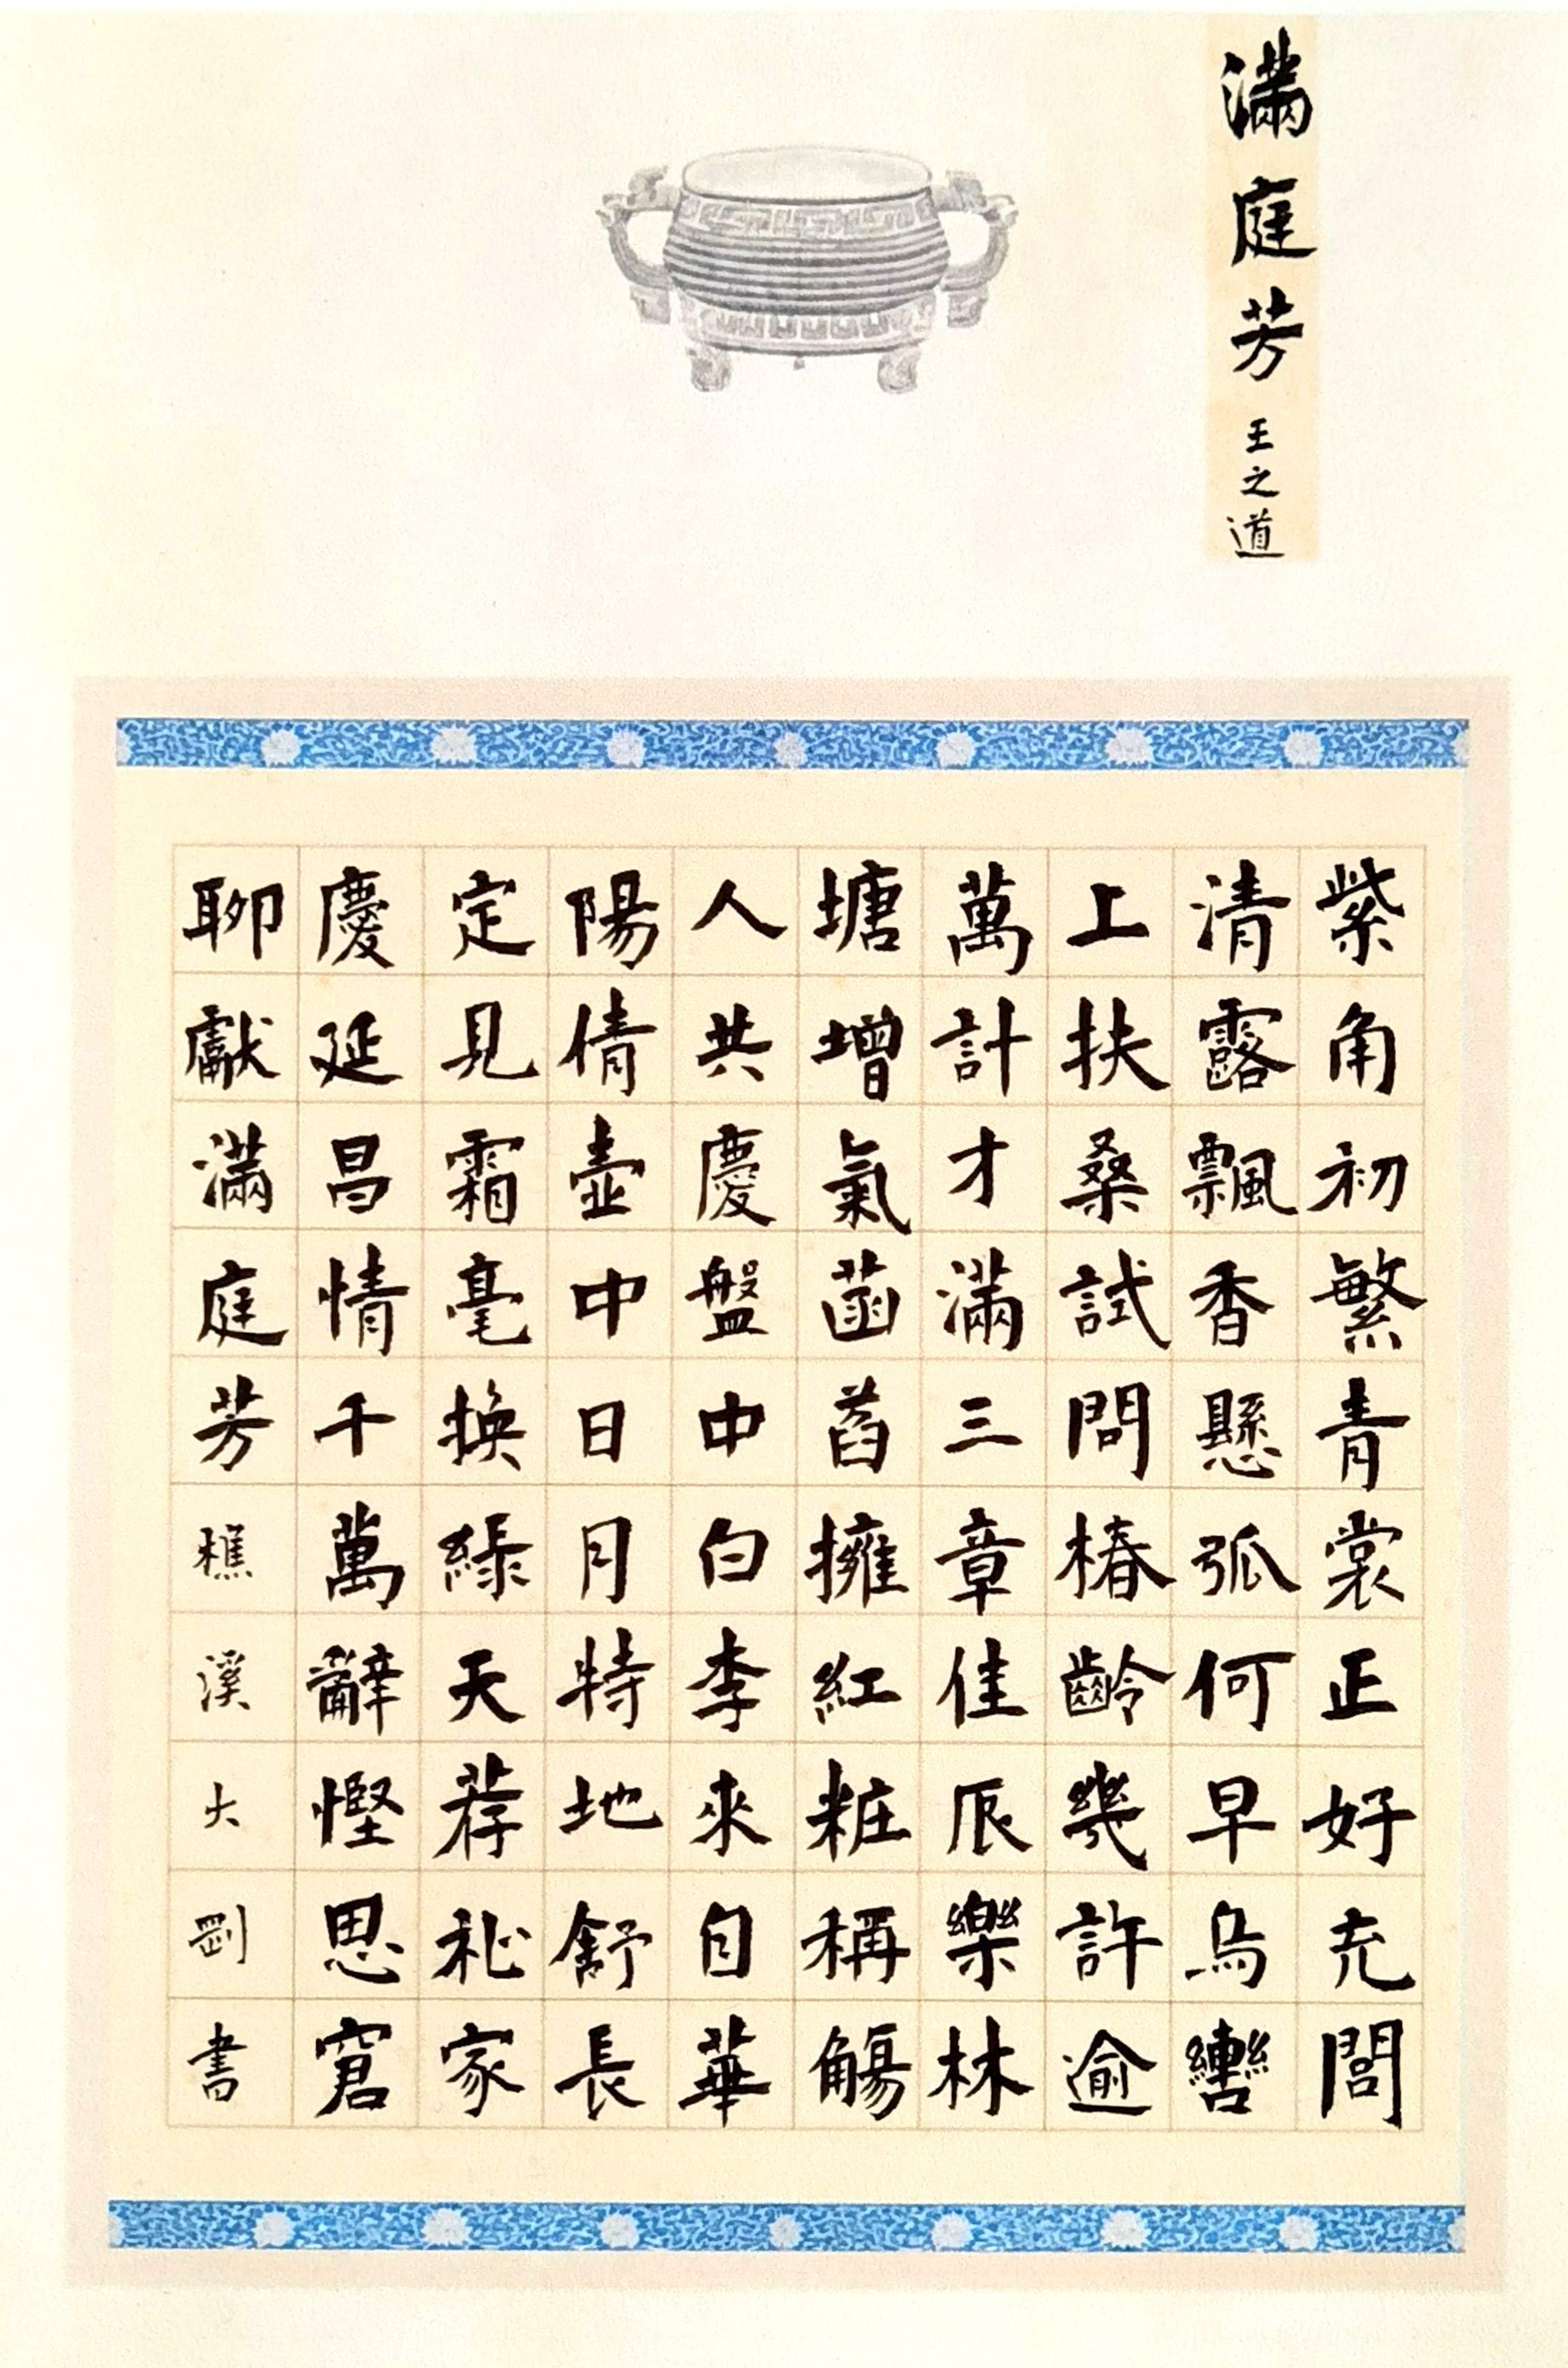 滿庭芳 王之道
紫角初繁青裳正好充閭
清露飄香懸弧何早烏轡
上扶桑試問椿齡幾許逾
萬計才滿三章佳辰樂林
塘增氣菡萏擁紅粧稱觴
人共慶盤中白李來自華
陽倩壺中日月特地舒長
定見霜毫換綠天荐秘家
慶延昌情千萬辭慳思窘
聊獻滿庭芳樵溪大剛書